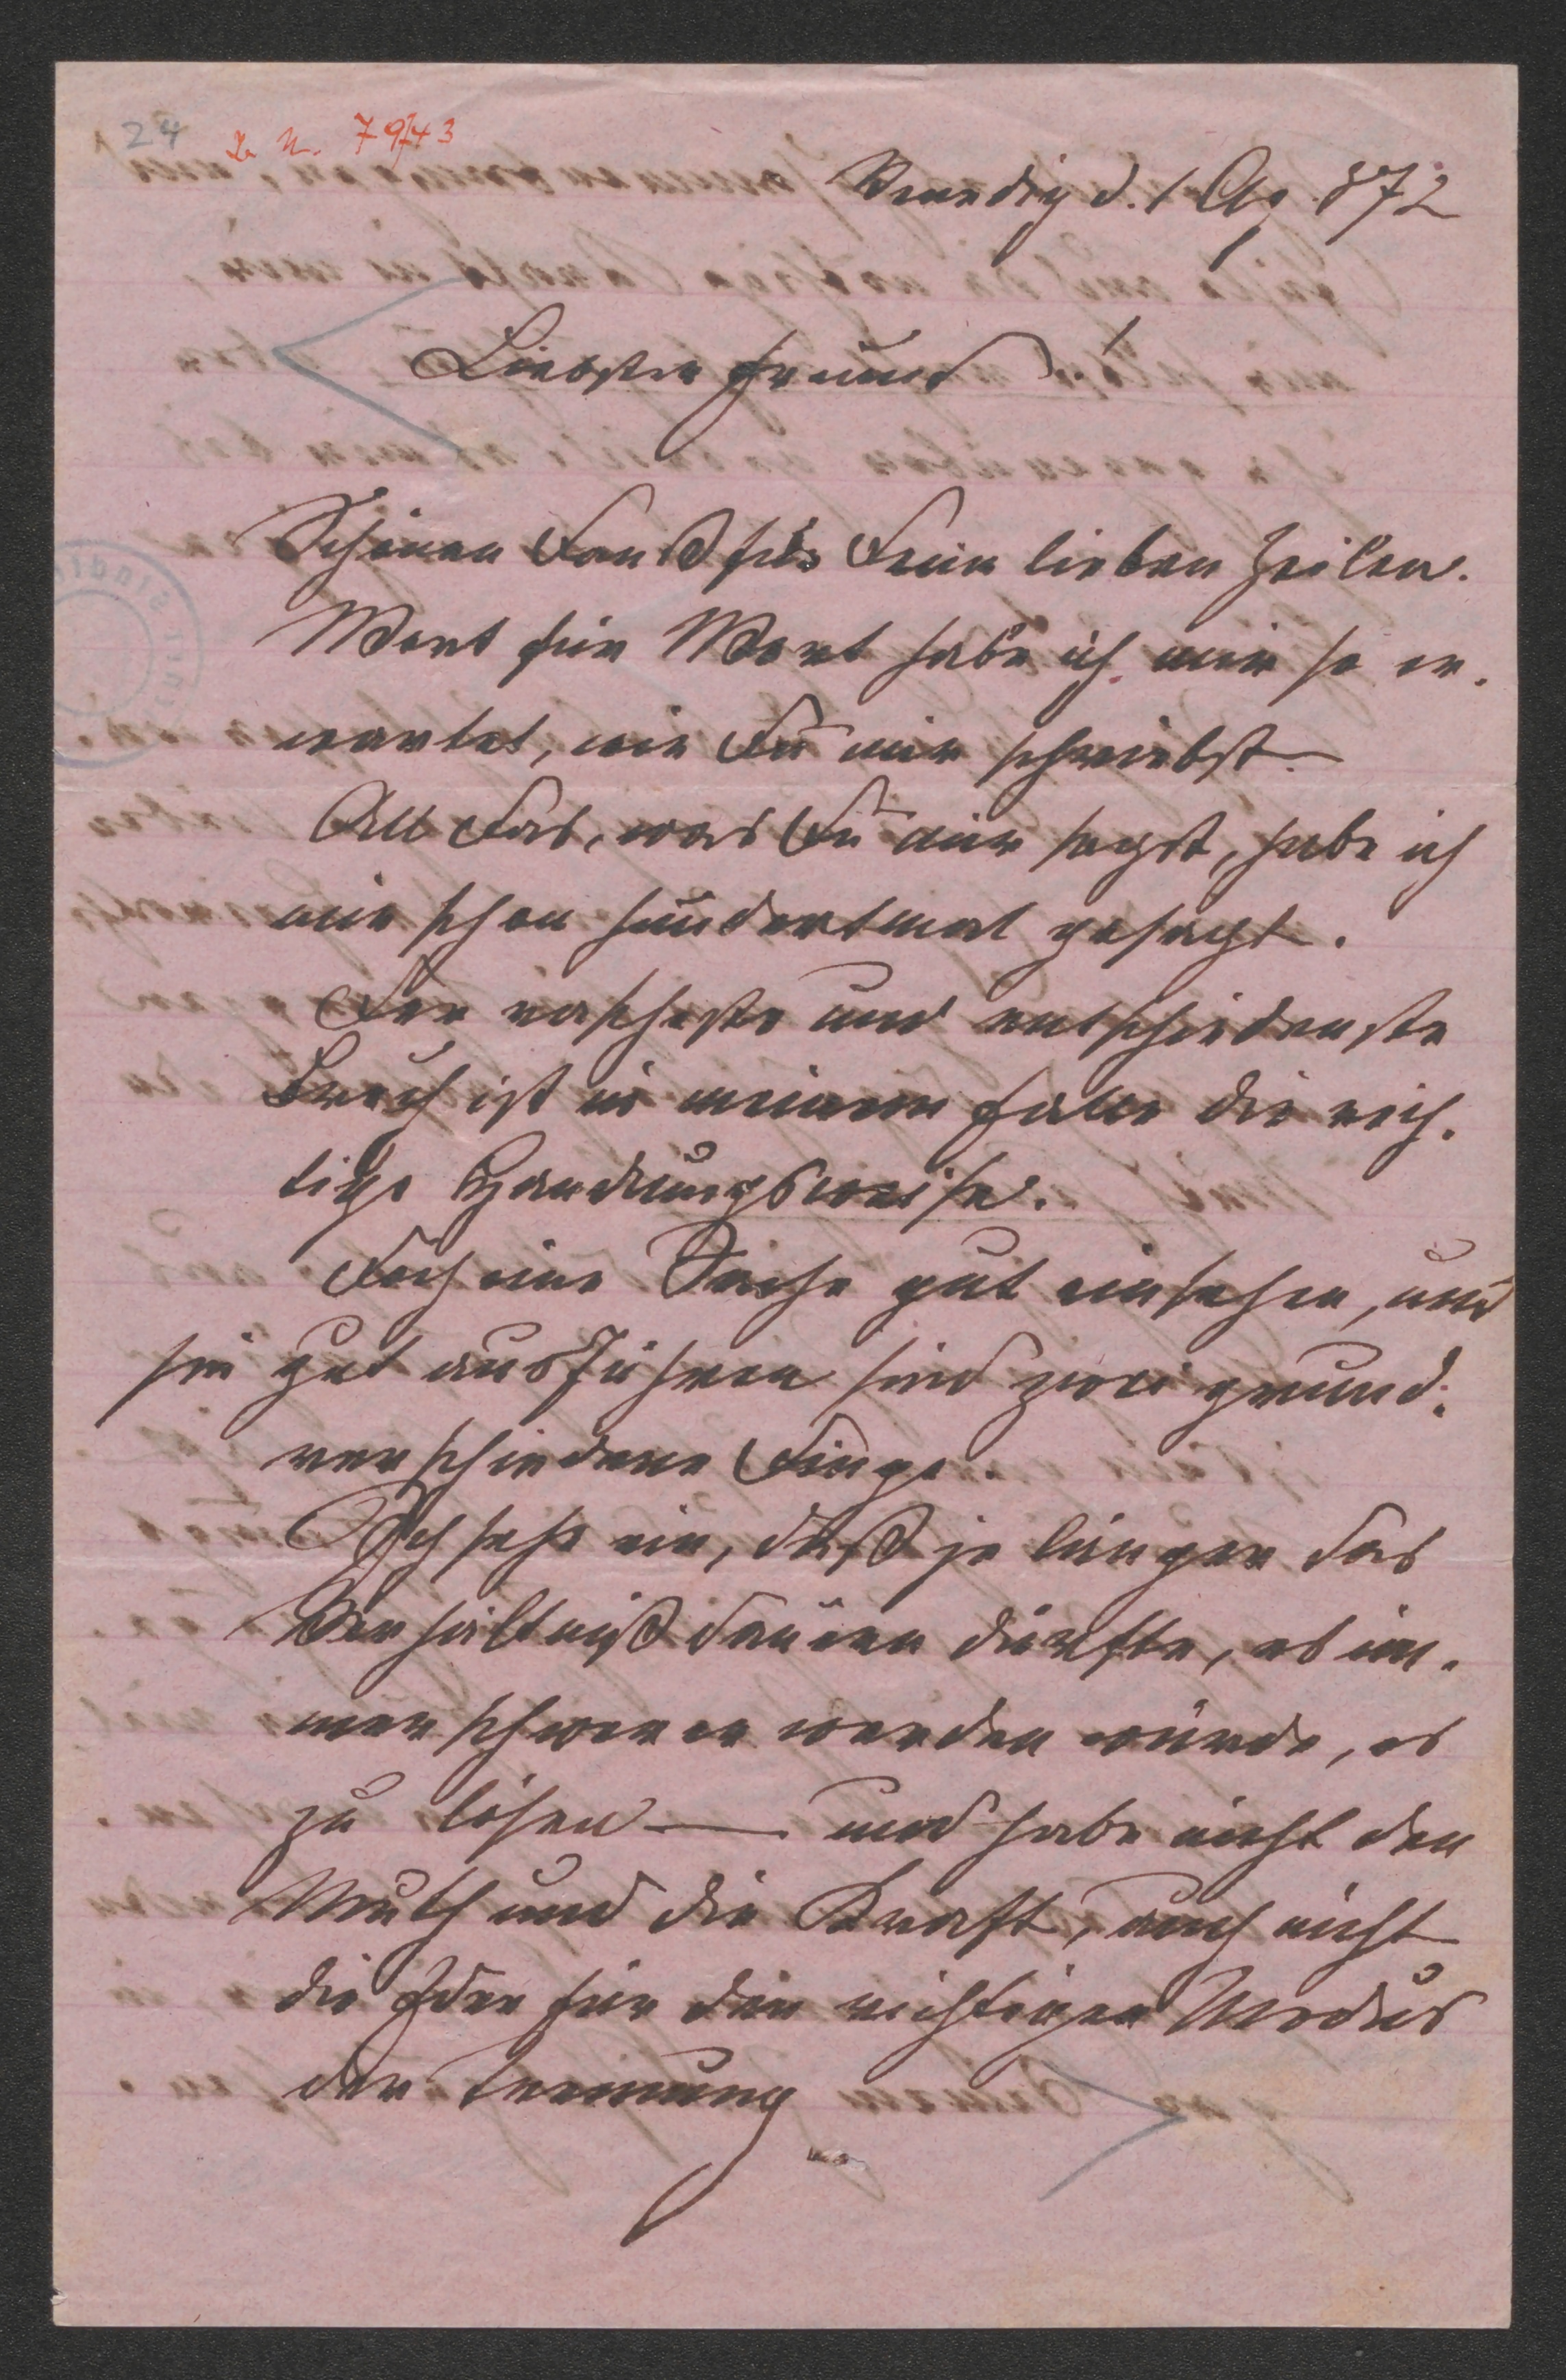 24 I. N. 79743
Venedig d. 1 Ap. 872
Liebster Freund!
Schönen Dank für Deine lieben Zeilen.
Wort für Wort habe ich mir so er-
wartet, wie Du mir schreibst.
All das, was Du mir sagst, habe ich
mir schon hundertmal gesagt.
Der rascheste und entschiedenste
Bruch ist in meinem Falle die rich-
tige Handlungsweise.
Doch eine Sache gut einsehen, und
sie gut ausführen sind zwei grund-
verschiedene Dinge.
Ich sehe ein, daß je länger das
Verhältniß dauern dürfte, es im-
mer schwerer werden würde, es
zu lösen — und habe nicht den
Muth und die Kraft, auch nicht
die Idee für den richtigen Modus
der Trennung